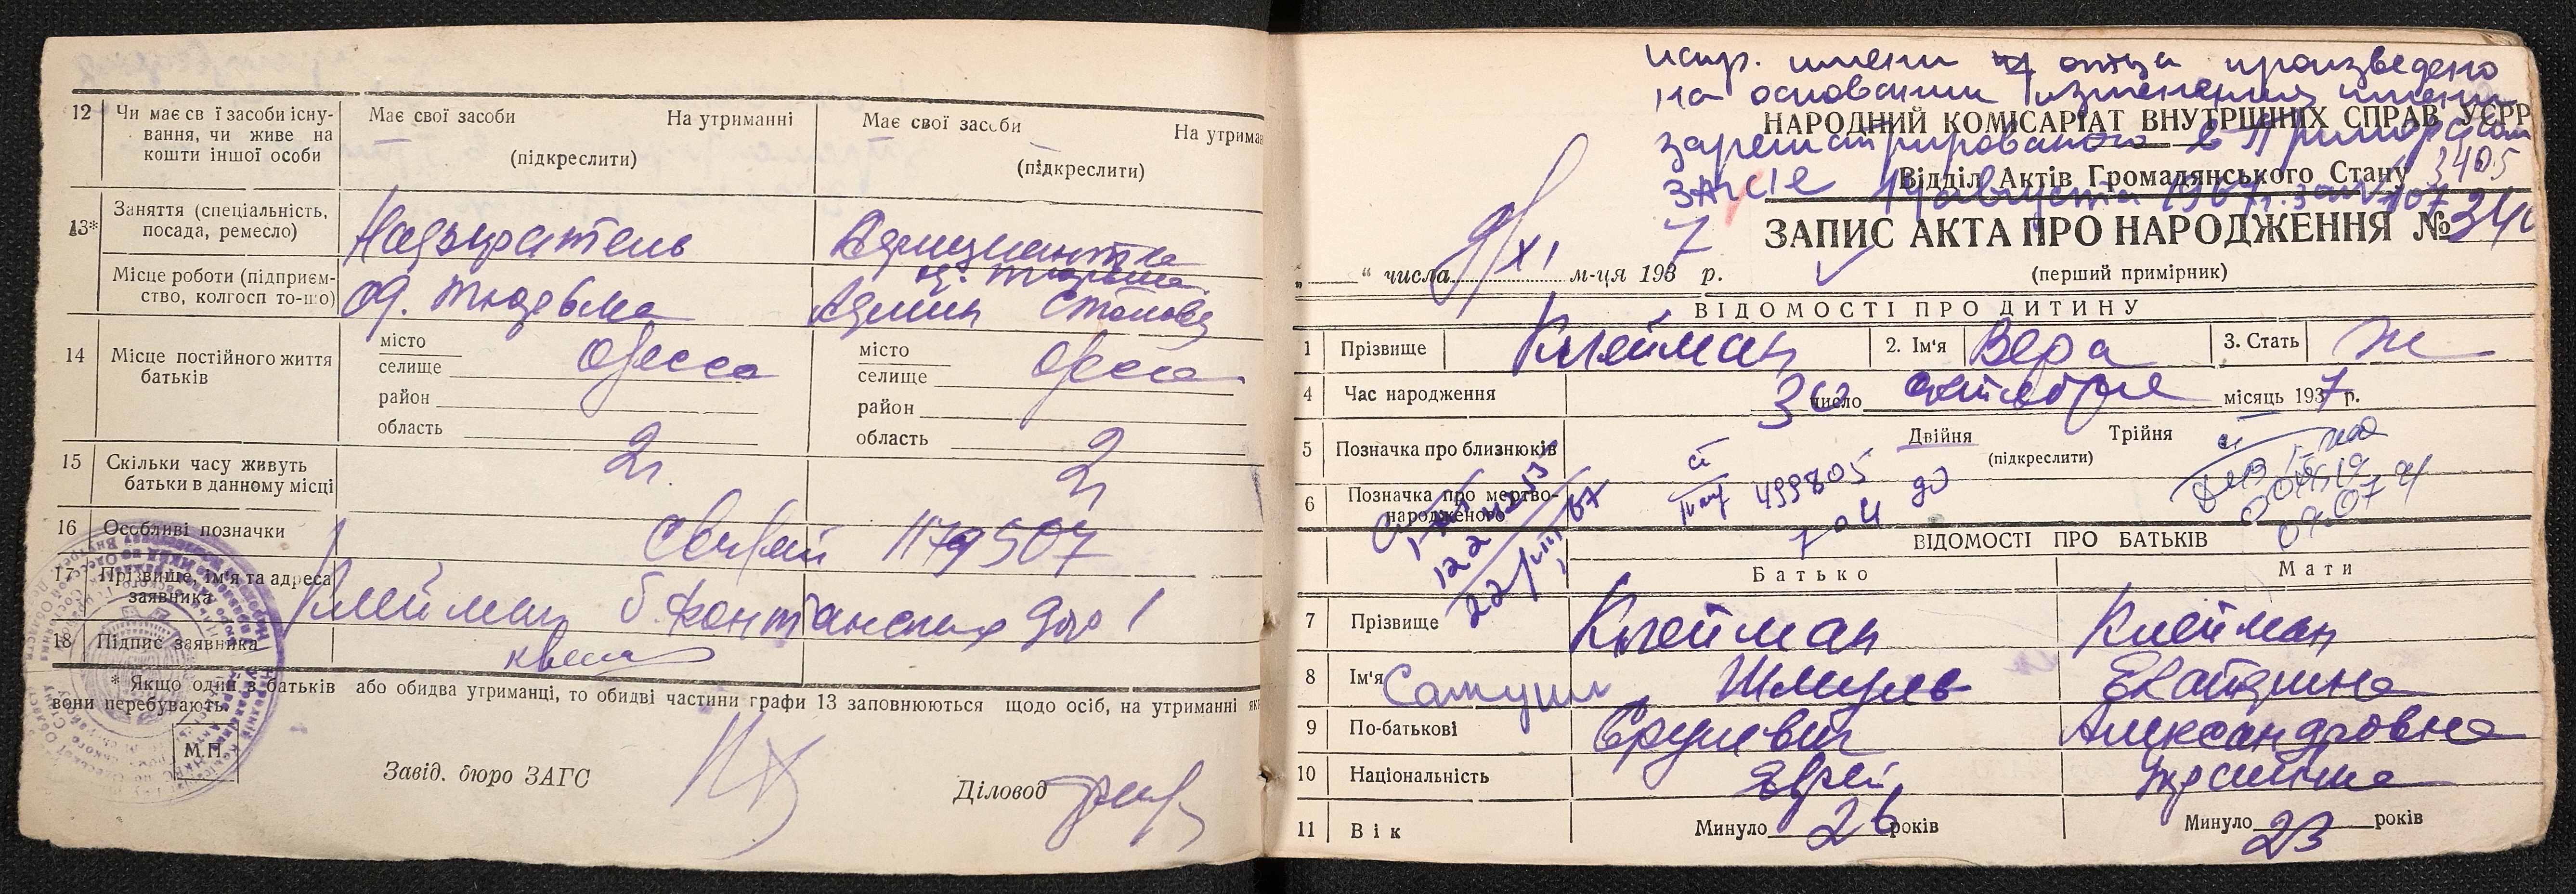 12 Чи має св ї засоби існу-
вання, чи живе на
кошти іншої особи
Має свої засоби На утриманні
(підкреслити)
Має свої засоби На утриман
(підкреслити)
13* Заняття (спеціальність,
посада, ремесло)
Надзиратель
Місце роботи (підприєм-
ство, колгосп то-що)
Од. тюрьма
14 Місце постійного життя
батьків
місто
селище Одесса
район
область
місто
селище Одесса
район
область
15 Скільки часу живуть
батьки в данному місці
2 г.
2 г
16 Особливі позначки
1179507
17 Прізвище, ім'я та адреса
заявника
Клейман Б. Фонтанская дор 1
18 Підпис заявника
* Якщо один з батьків або обидва утриманці, то обидві частини графи 13 заповнюються щодо осіб, на утриманні яки
вони перебувають.
М.П.
Завід. бюро ЗАГС
Діловод
испр. имени отца произведено
на основании изменения имени
зарегистрированого в Приморском
ЗАГСІе 14 августа 1967 г. за № 107
НАРОДНИЙ КОМІСАРІАТ ВНУТРІШНІХ СПРАВ УСРР
Відділ Актів Громадянського Стану
3405
ЗАПИС АКТА ПРО НАРОДЖЕННЯ № 340
„ “ числа 9/XI м-ця 1937 р.
(перший примірник)
ВІДОМОСТІ ПРО ДИТИНУ
1 Прізвище Клейман 2. Ім'я Вера 3. Стать ж
4 Час народження 30 число октября місяць 1937 р.
5 Позначка про близнюків
Двійня Трійня
(підкреслити)
6 Позначка про мертво-
народженого
499805
ВІДОМОСТІ ПРО БАТЬКІВ
Батько Мати
7 Прізвище Клейман Клейман
8 Ім'я Самуил Шмуль Екатерина
9 По-батькові Срулевич Александровна
10 Національність Еврей Украинка
11 Вік Минуло 26 років Минуло 23 років